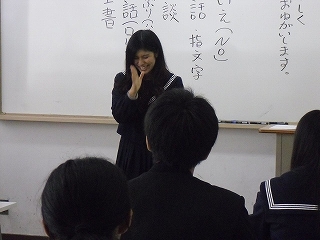 しく
おねがいします。
いえ(NO)
話 指文字
談
話(
書